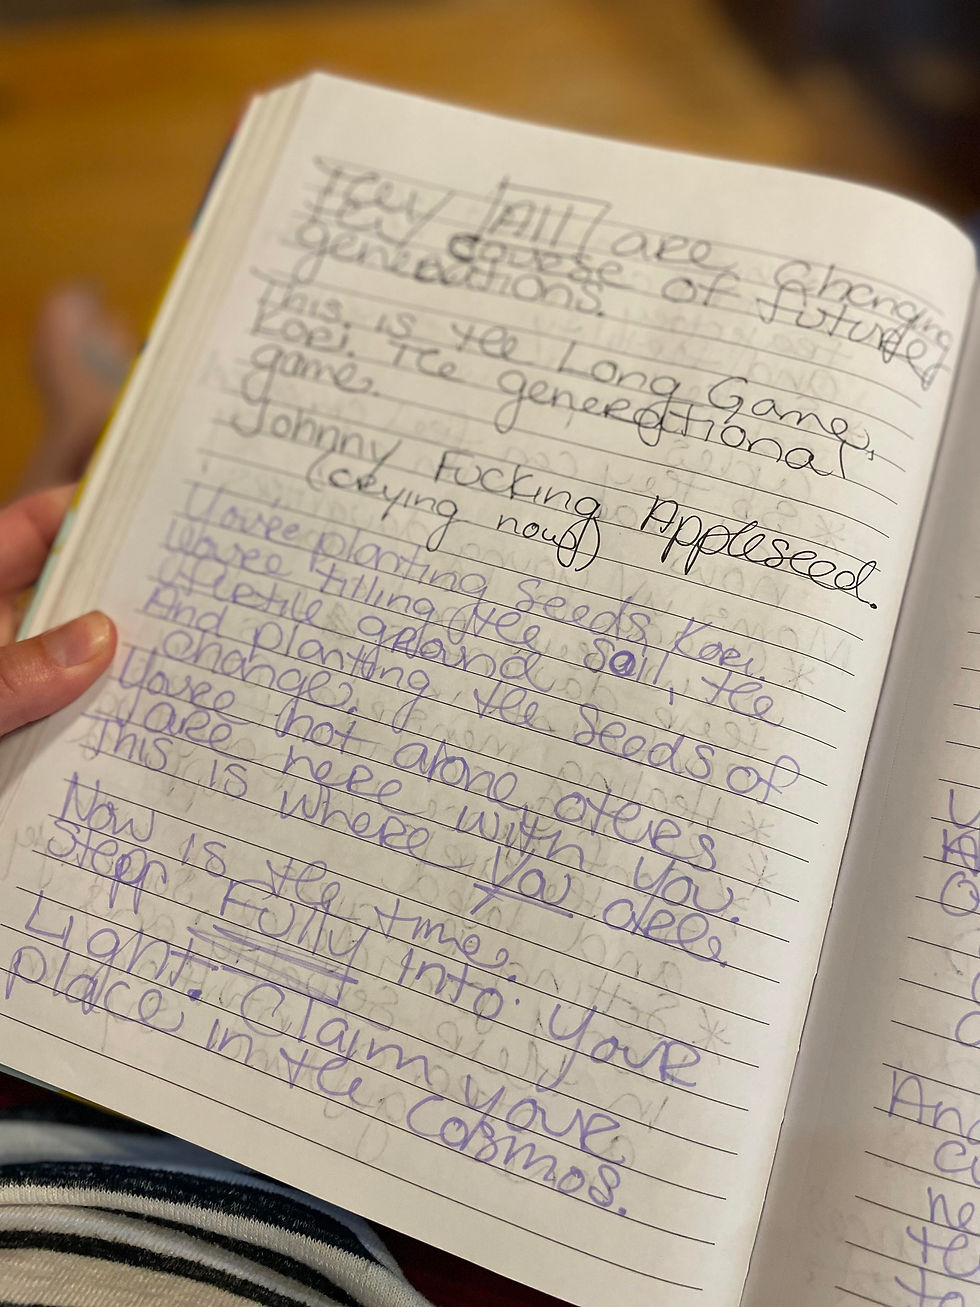 They All are changing
the course of future
generations.
This is the Long Game,
Kori. The generational
game.
Johnny Fucking Appleseed.
(crying now)
You're planting seeds, Kori.
You're tilling the soil, the
fertile ground
And planting the seeds of
change.
You're not alone, others
are here with you.
This is where You are.
Now is the time.
Step Fully into your
Light. Claim your
place in the Cosmos.
And